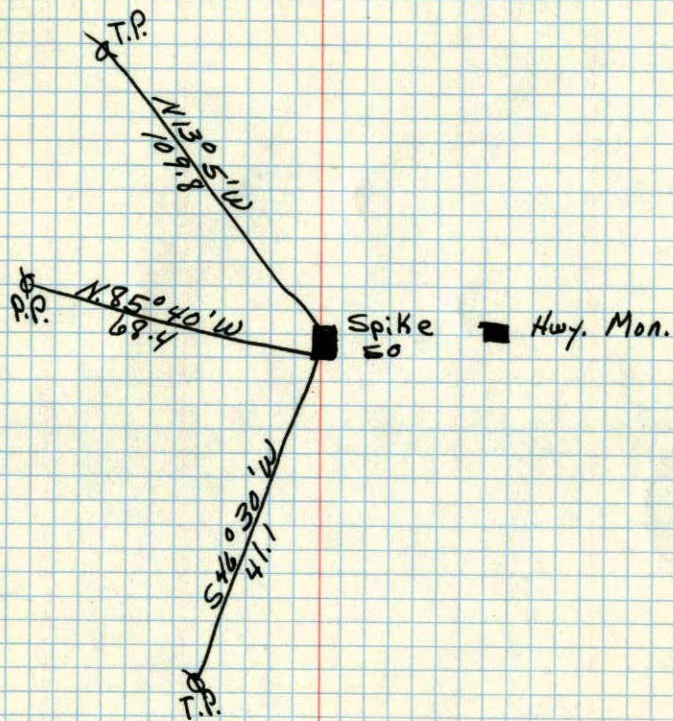 T.P.
N13°5'W
109.8
N.85°40'W
68.4
P.P.
Spike
50
Hwy. Mon.
S46°30'W
41.1
T.P.